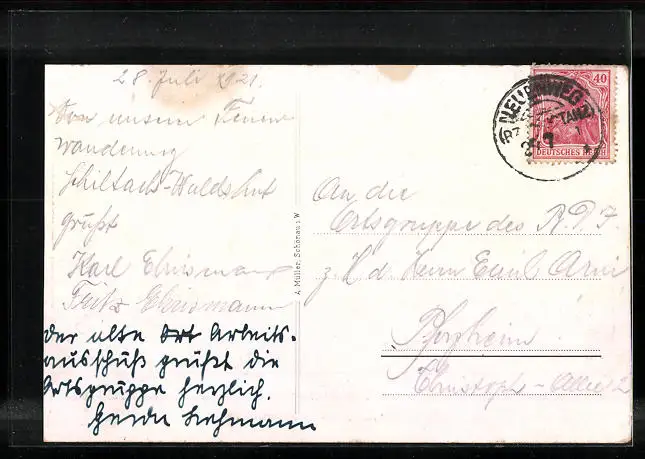 28. Juli 1921.
Von unserer Ferien
wanderung
Schiltach-Waldshut
grüßt
Karl Ehrismann
Fritz Ehrismann
der alte Ort Arbeits-
ausschuß grüßt die
Ortsgruppe herzlich.
Lehmann
A. Müller, Schönau i. W.
NEUENWEG
40
DEUTSCHES REICH
An die
Ortsgruppe des
z. H. d. Herrn Emil
Pforzheim
Christoph-Allee 2